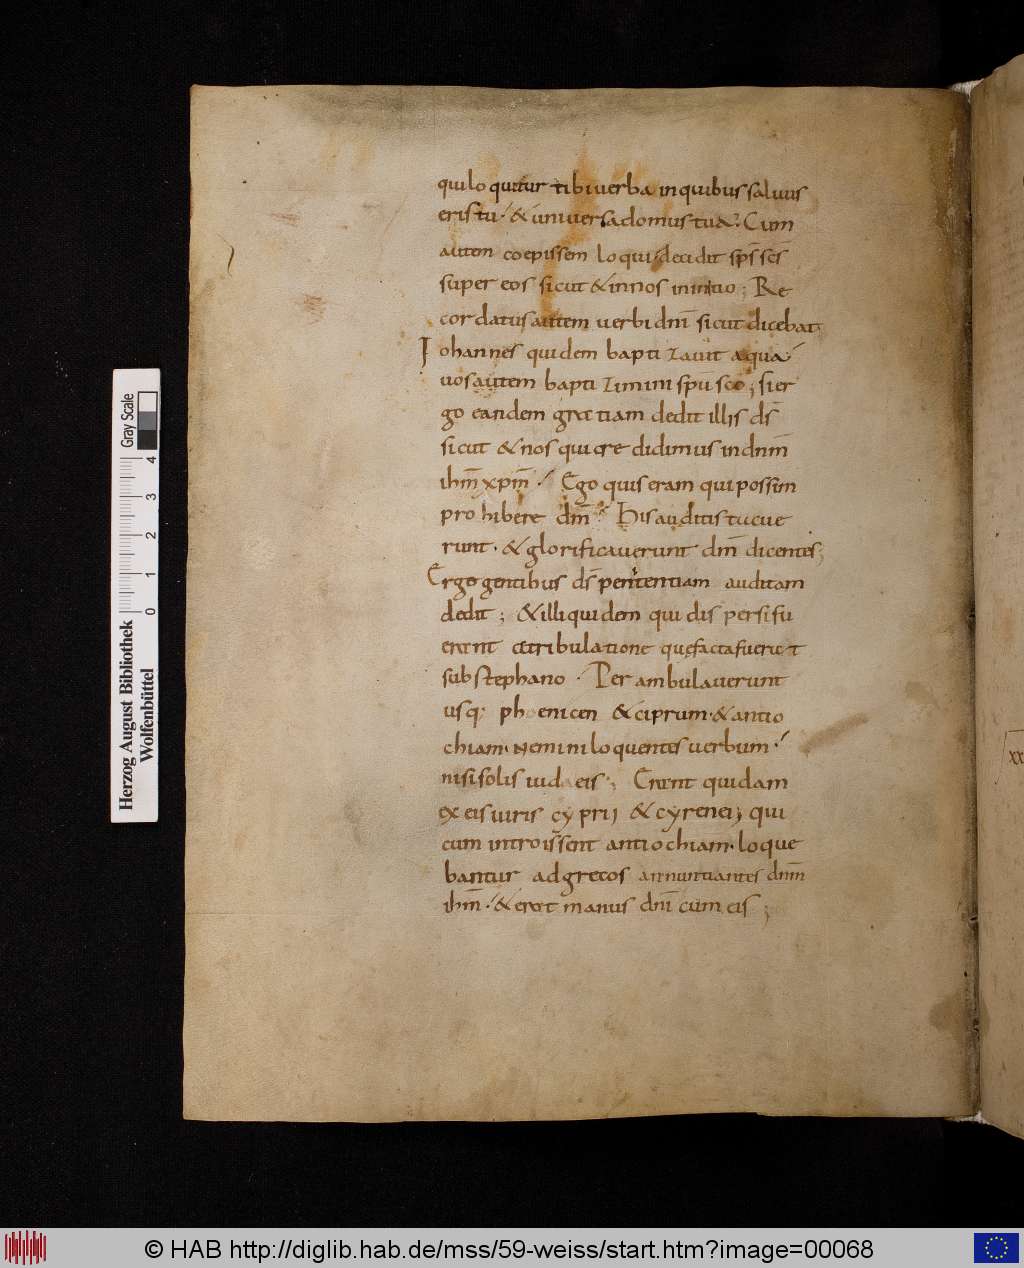 quiloquitur tibi uerba inquibus saluus
eris tu / & uniuersa domus tua. Cum
autem coepissem loqui / decidit sp̄s sc̄s
super eos sicut & innos ininitio ; Re
cordatus autem uerbi dn̄i sicut dicebat ;
Iohannes quidem baptizauit aqua /
uos autem baptizimini sp̄u sc̄o ; si er
go eandem gratiam dedit illis dс̄
sicut & nos qui credidimus in dnm̄
ihm̄ xpm̄ ·/ Ego quis eram qui possim
prohibere dm̄ His auditis tacue
runt · & glorificauerunt dm̄ dicentes ;
Ergo gentibus ds̄ penitentiam ad uitam
dedit ; & illi quidem qui dispersi fu
erant atribulatione quę facta fuerat
sub stephano · Perambulauerunt
usq; phoenicen & ciprum · & antio
chiam · Nemini loquentes uerbum ·/
nisi solis iudaeis · ; Erant quidam
ex eis uiris cyprij & cyrenei ; qui
cum introissent antiochiam · loque
bantur ad grecos annuntiantes dnm̄
ihm̄ ·/ & erat manus dn̄i cum eis ;
xx
Herzog August Bibliothek
Wolfenbüttel
Gray Scale
0 1 2 3 4
© HAB http://diglib.hab.de/mss/59-weiss/start.htm?image=00068